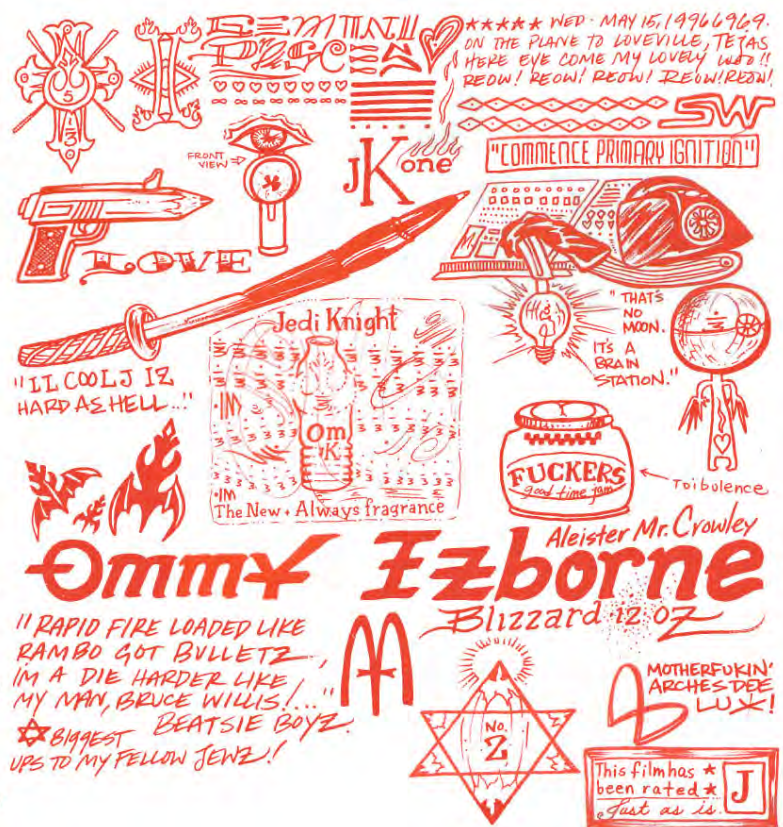 ★★★★★ WED. MAY 15, 19966969.
ON THE PLANE TO LOVEVILLE, TEJAS
HERE EYE COME MY LOVELY WOO!!
REOW! REOW! REOW! REOW! REOW!
SW
FRONT
VIEW
JK one
"COMMENCE PRIMARY IGNITION"
LOVE
"THAT'S
NO
MOON.
IT'S A
BRAIN
STATION."
"LL COOL J IZ
HARD AS HELL..."
Jedi Knight
Om
K.
The New + Always fragrance
FUCKERS
good time jam
Toibulence
Aleister Mr. Crowley
Ommy Izborne
Blizzard 12 oz
"RAPID FIRE LOADED LIKE
RAMBO GOT BULLETZ
I'M A DIE HARDER LIKE
MY MAN, BRUCE WILLIS!..."
BEATSIE BOYZ.
BIGGEST
UPS TO MY FELLOW JEWZ!
M
No.
Z
MOTHERFUKIN'
ARCHES DEE
LUX!
This film has ★
been rated ★
Just as is.
J